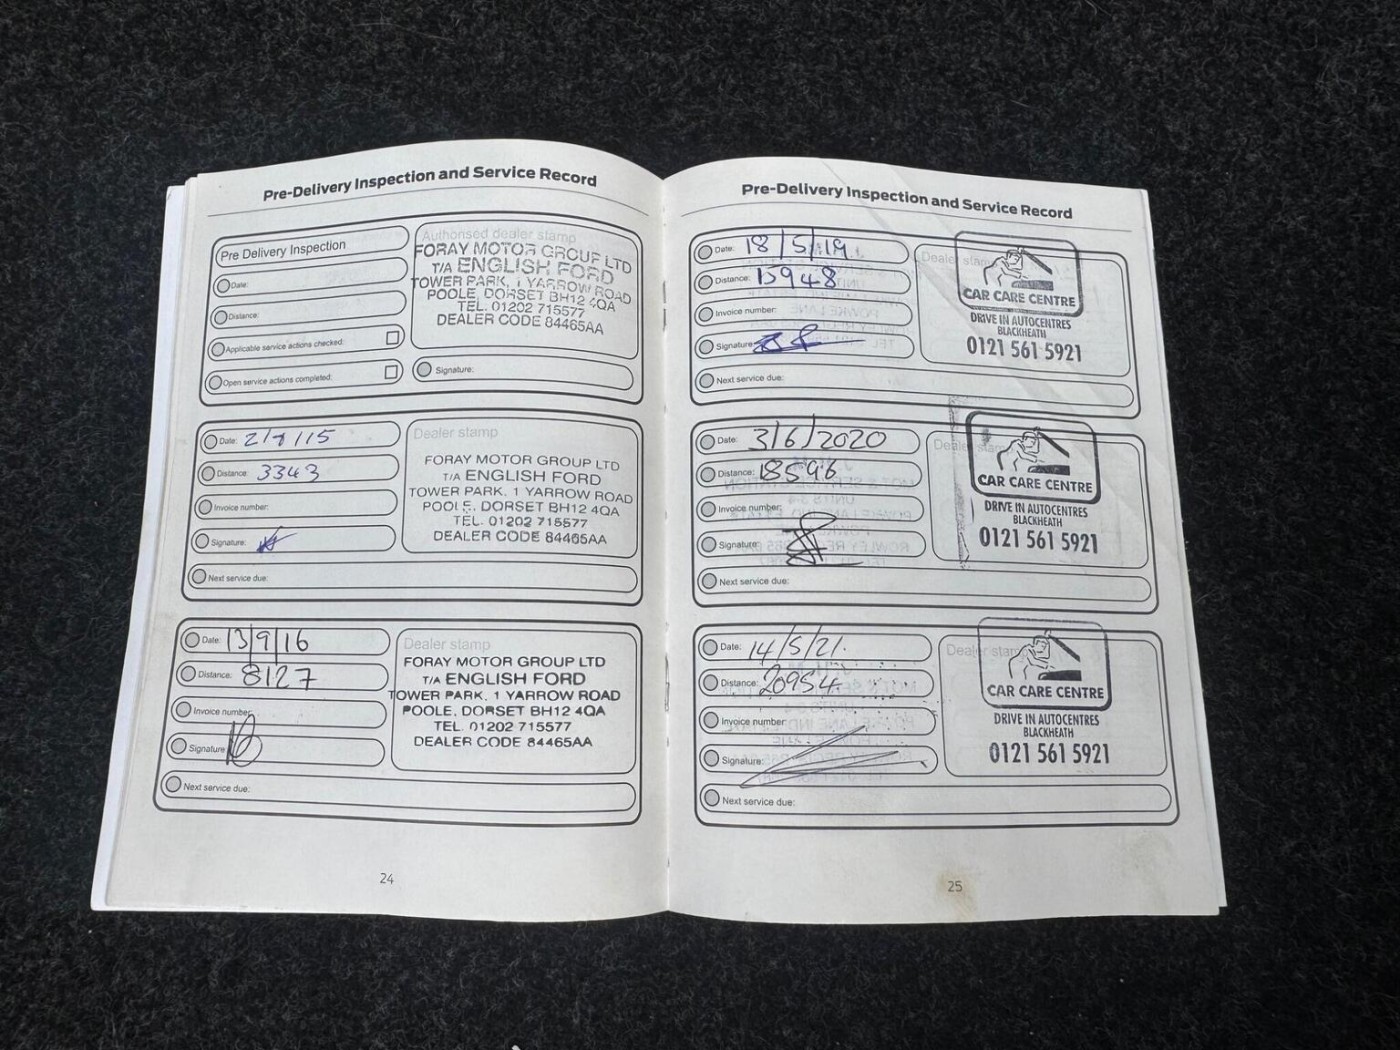 Pre-Delivery Inspection and Service Record
Pre Delivery Inspection
Date:
Distance:
Applicable service actions checked:
Open service actions completed:
Authorised dealer stamp
FORAY MOTOR GROUP LTD
T/A ENGLISH FORD
TOWER PARK, 1 YARROW ROAD
POOLE, DORSET BH12 4QA
TEL. 01202 715577
DEALER CODE 84465AA
Signature:
Date: 2/9/15
Distance: 3343
Invoice number:
Signature:
Next service due:
Dealer stamp
FORAY MOTOR GROUP LTD
T/A ENGLISH FORD
TOWER PARK, 1 YARROW ROAD
POOLE, DORSET BH12 4QA
TEL. 01202 715577
DEALER CODE 84465AA
Date: 13/9/16
Distance: 8127
Invoice number:
Signature
Next service due:
Dealer stamp
FORAY MOTOR GROUP LTD
T/A ENGLISH FORD
TOWER PARK, 1 YARROW ROAD
POOLE, DORSET BH12 4QA
TEL. 01202 715577
DEALER CODE 84465AA
24
Pre-Delivery Inspection and Service Record
Date: 18/5/19
Distance: 13948
Invoice number:
Signature:
Next service due:
Dealer stamp
CAR CARE CENTRE
DRIVE IN AUTOCENTRES
BLACKHEATH
0121 561 5921
Date: 3/6/2020
Distance: 18596
Invoice number:
Signature:
Next service due:
Dealer stamp
CAR CARE CENTRE
DRIVE IN AUTOCENTRES
BLACKHEATH
0121 561 5921
Date: 14/5/21.
Distance: 20954
Invoice number:
Signature:
Next service due:
Dealer stamp
CAR CARE CENTRE
DRIVE IN AUTOCENTRES
BLACKHEATH
0121 561 5921
25